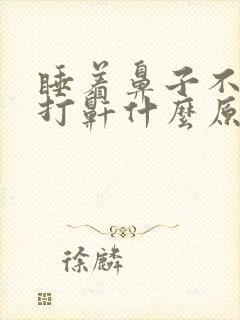 睡着鼻子不
打鼾什麼原
徐麟